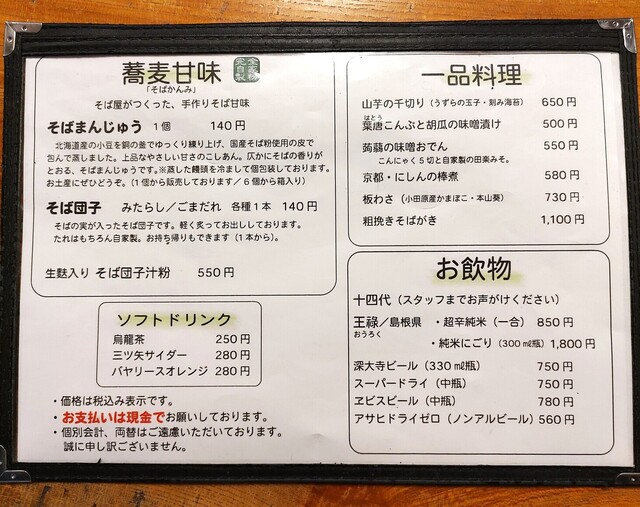 蕎麦甘味
「そばかんみ」
そば屋がつくった、手作りそば甘味
そばまんじゅう 1個 140円
北海道産の小豆を銅の釜でゆっくり練り上げ、国産そば粉使用の皮で
包んで蒸しました。上品なやさしい甘さのこしあん。仄かにそばの香りが
とおる、そばまんじゅうです。※蒸した饅頭を冷まして個包装しております。
お土産にぜひどうぞ。(1個から販売しております/6個から箱入り)
そば団子 みたらし/ごまだれ 各種1本 140円
そばの実が入ったそば団子です。軽く炙ってお出ししております。
たれはもちろん自家製。お持ち帰りもできます(1本から)。
生麩入り そば団子汁粉 550円
ソフトドリンク
烏龍茶 250円
三ツ矢サイダー 280円
バヤリースオレンジ 280円
・価格は税込み表示です。
・お支払いは現金でお願いしております。
・個別会計、両替はご遠慮いただいております。
誠に申し訳ございません。
一品料理
山芋の千切り(うずらの玉子・刻み海苔) 650円
はとう
葉唐こんぶと胡瓜の味噌漬け 500円
蒟蒻の味噌おでん 550円
こんにゃく5切と自家製の田楽みそ。
京都・にしんの棒煮 580円
板わさ(小田原産かまぼこ・本山葵) 730円
粗挽きそばがき 1,100円
お飲物
十四代(スタッフまでお声がけください)
王祿/島根県 ・超辛純米(一合) 850円
おうろく
・純米にごり(300㎖瓶) 1,800円
深大寺ビール(330㎖瓶) 750円
スーパードライ(中瓶) 750円
ヱビスビール(中瓶) 780円
アサヒドライゼロ(ノンアルビール) 560円